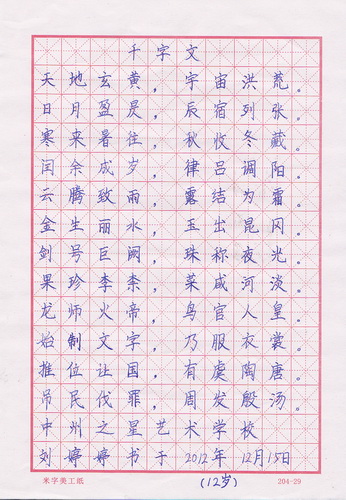 千字文
天地玄黄，宇宙洪荒。
日月盈昃，辰宿列张。
寒来暑往，秋收冬藏。
闰余成岁，律吕调阳。
云腾致雨，露结为霜。
金生丽水，玉出昆冈。
剑号巨阙，珠称夜光。
果珍李柰，菜咸河淡。
龙师火帝，鸟官人皇。
始制文字，乃服衣裳。
推位让国，有虞陶唐。
吊民伐罪，周发殷汤。
中州之星艺术学校
刘婷婷书于 2012年 12月15日
米字美工纸 (12岁) 204-29